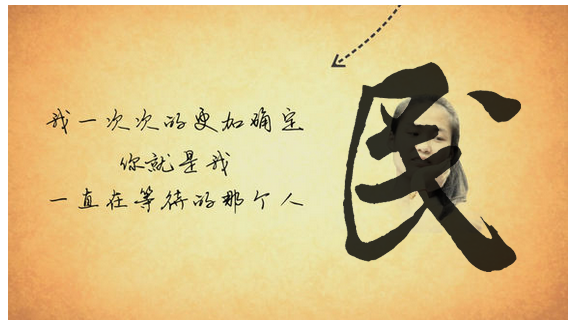 我一次次的更加确定
你就是我
一直在等待的那个人
民